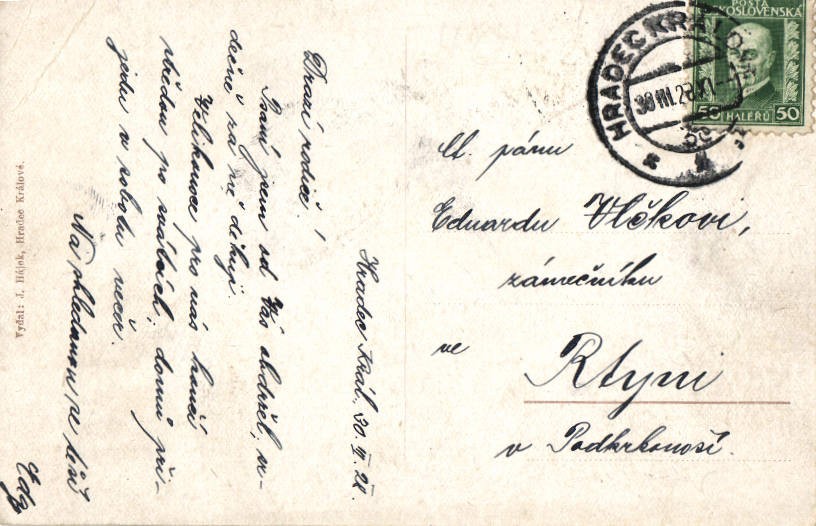 Hradec Král. 30. III. 28.
Drazí rodiče!
Psaní jsem od Vás obdržel, sr-
dečně za ně děkuji.
Velikonoce pro nás končí
středou po svátcích; domů při-
jedu v sobotu večer.
Na shledanou se těší
Eda
Vydal: J. Hájek, Hradec Králové.
POŠTA
ČESKOSLOVENSKÁ
50 HALÉŘŮ 50
HRADEC KRÁLOVÉ
30 III 28
Ct. pánu
Eduardu Vlčkovi,
zámečníku
ve
Rtyni
v Podkrkonoší.